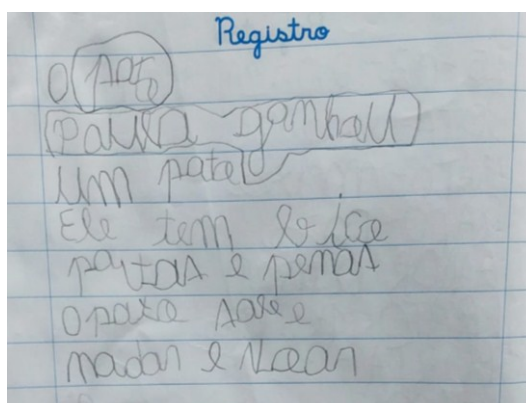 Registro
O pato
Paula ganhou
um pato
Ele tem bico
patas e penas
O pato sabe
nadar e voar